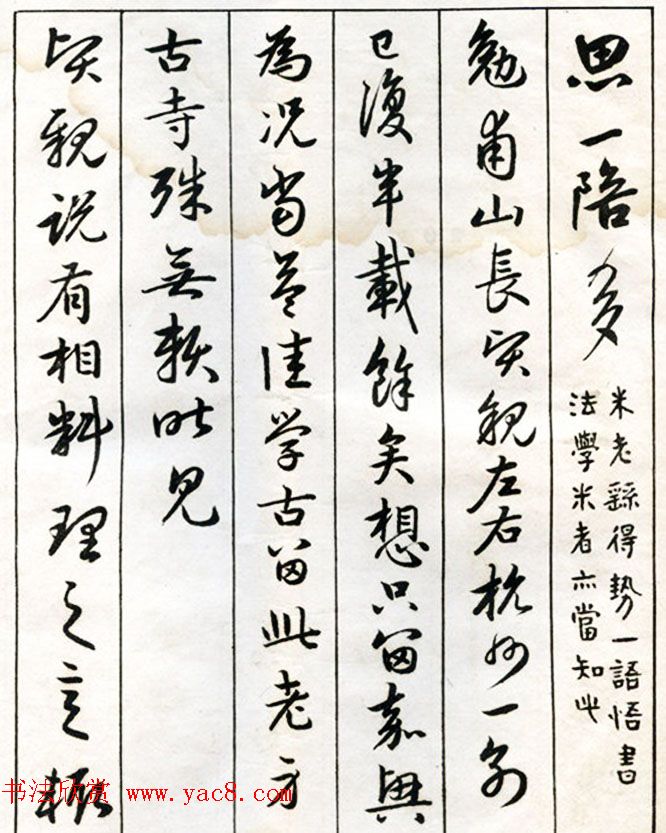 思一陪多
米老縣得勢一語悟書
法學米者亦當知此
勉甫山長契親左右杭州一別
已復半載餘矣想只留嘉興
為況當益佳学古留此老方
古寺殊無頼昨見
契親説有相料理之意
书法欣赏 www.yac8.com